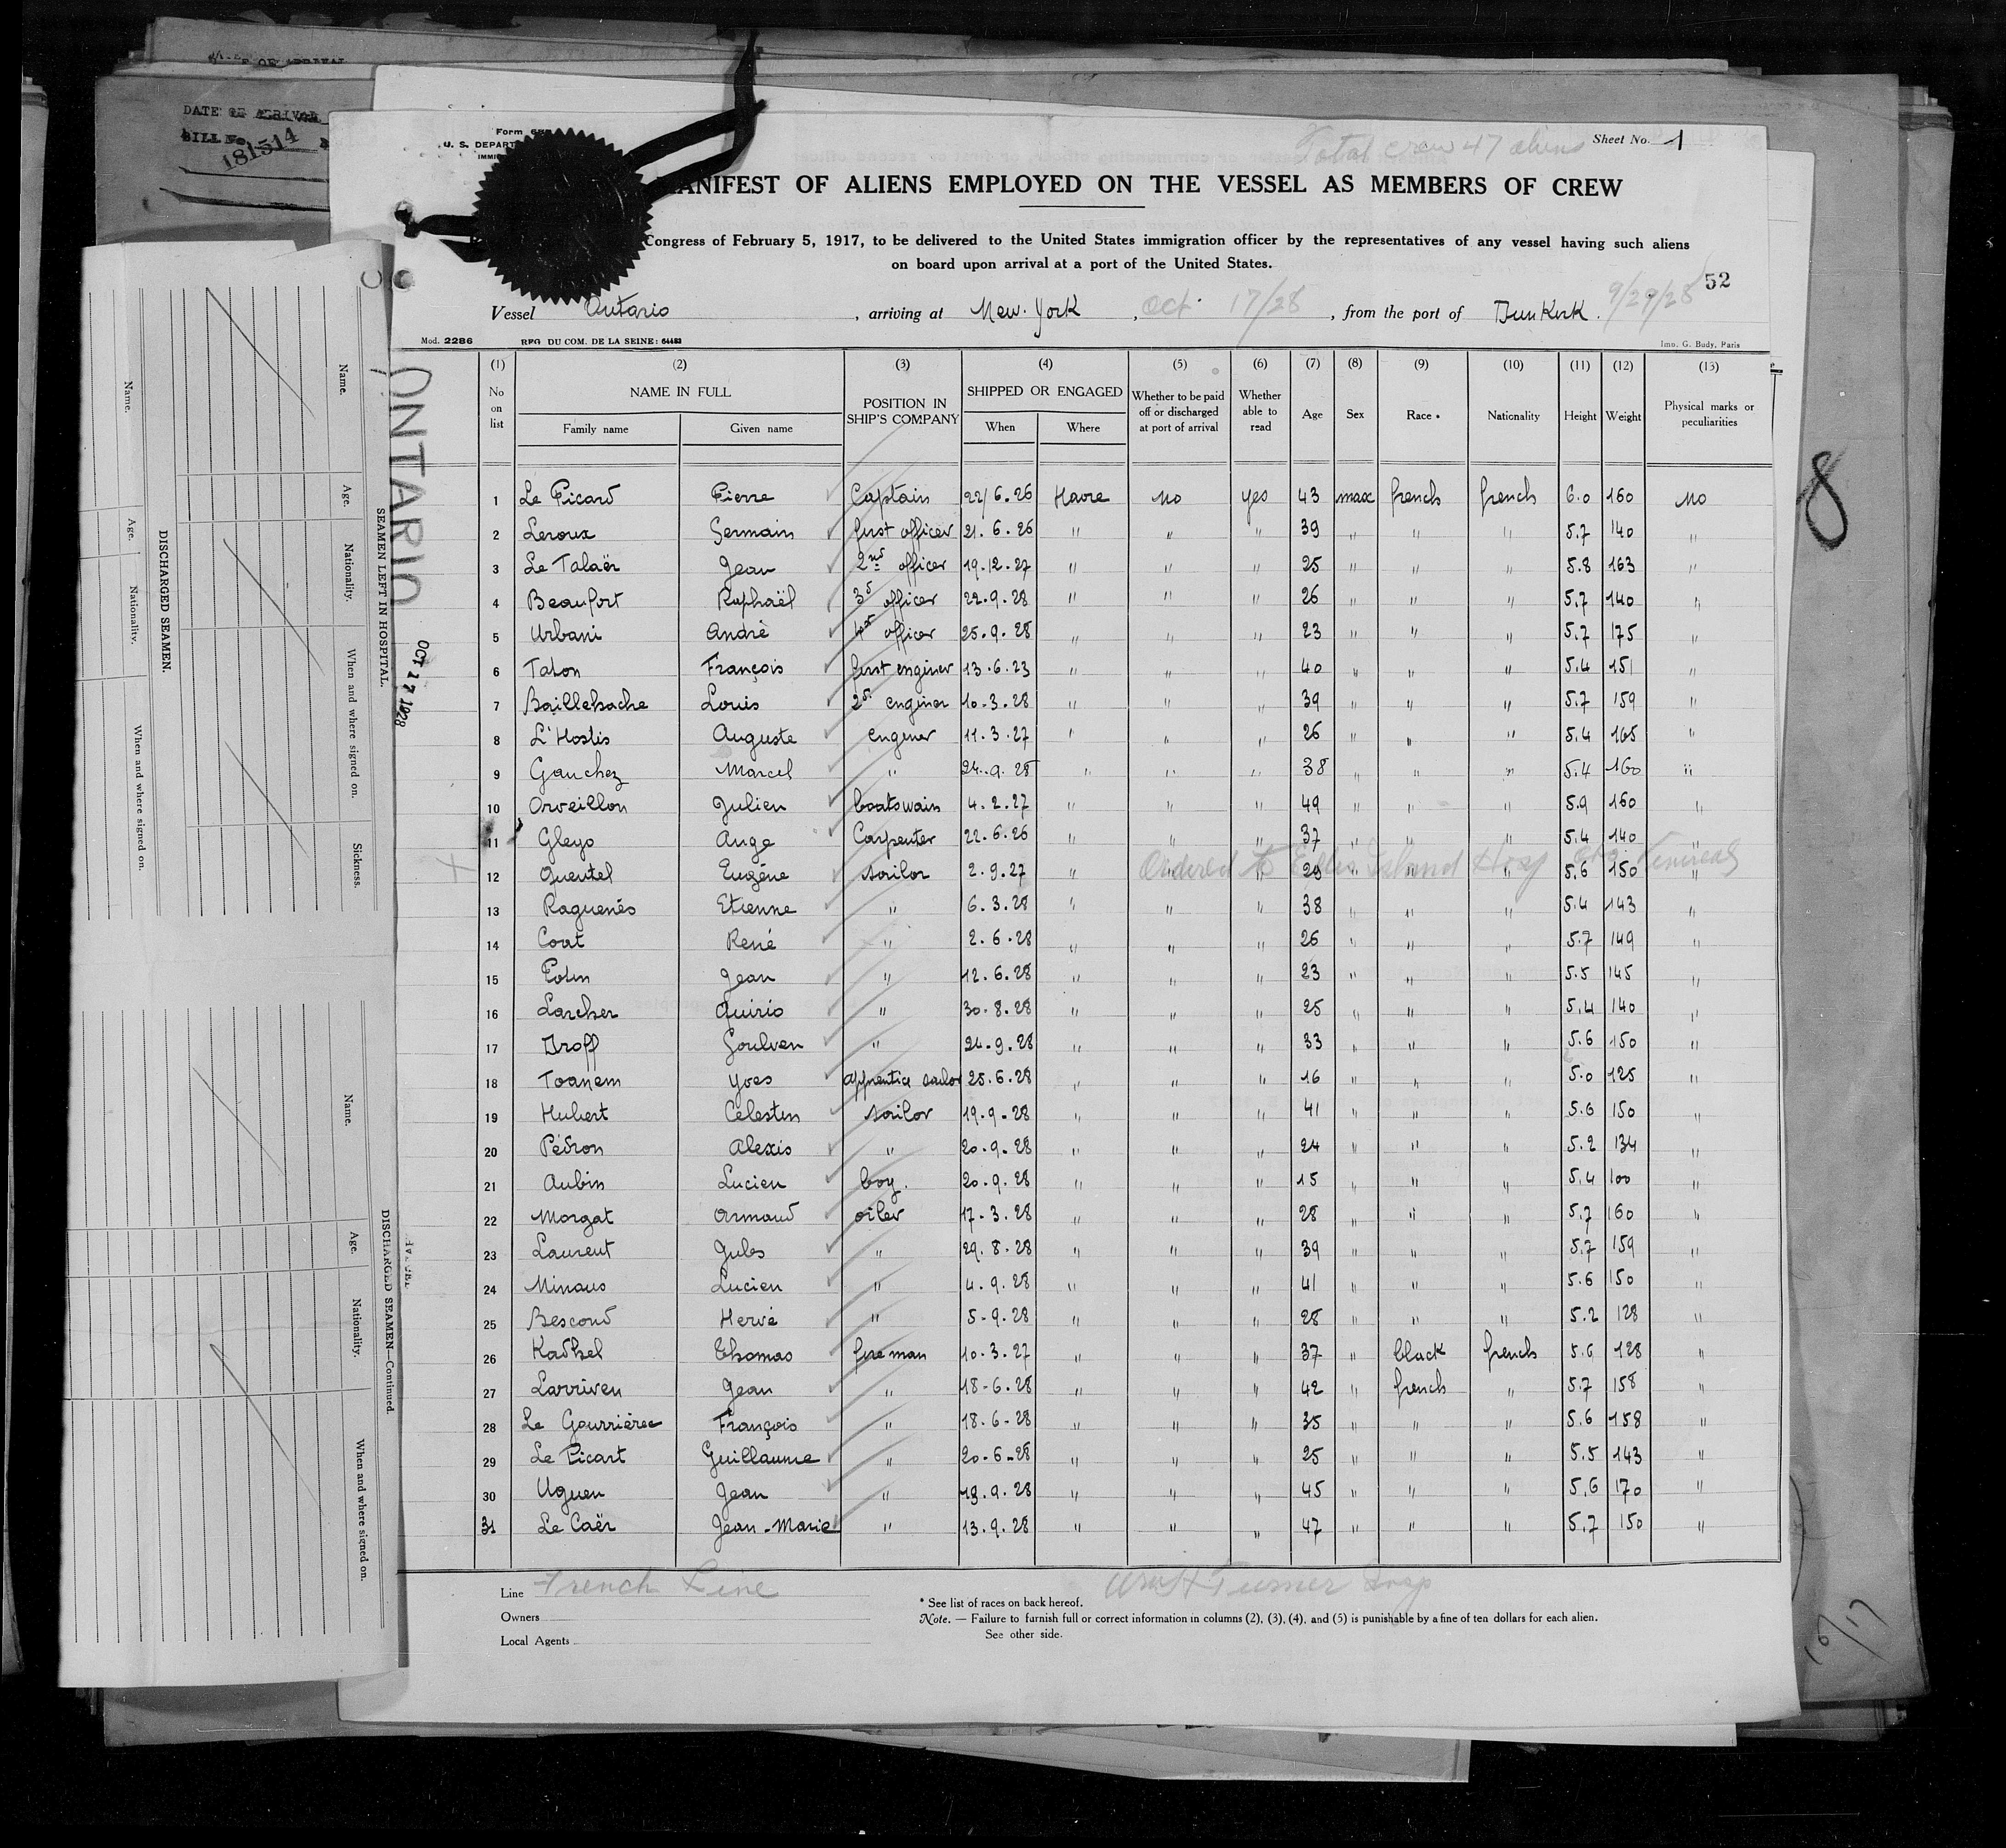 DATE OF ARRIVAL
BILL No.
181514
Form
U. S. DEPART
IMMI
Total crew 47 aliens
Sheet No. 1
MANIFEST OF ALIENS EMPLOYED ON THE VESSEL AS MEMBERS OF CREW
Congress of February 5, 1917, to be delivered to the United States immigration officer by the representatives of any vessel having such aliens
on board upon arrival at a port of the United States.
52
Vessel Ontario, arriving at New-York, Oct. 17/28, from the port of Dunkerk. 9/29/28
Mod. 2286 REG DU COM. DE LA SEINE: 64483 Imp. G. Budy, Paris
(1) (2) (3) (4) (5) (6) (7) (8) (9) (10) (11) (12) (13)
No on list NAME IN FULL POSITION IN SHIP'S COMPANY SHIPPED OR ENGAGED Whether to be paid off or discharged at port of arrival Whether able to read Age Sex Race * Nationality Height Weight Physical marks or peculiarities
Family name Given name When Where
1 Le Picard Pierre Captain 22/6.26 Havre no yes 43 french french 6.0 160 no
2 Leroux Germain first officer 21.6.26 " " " 39 " " " 5.7 140 "
3 Le Talaër Jean 2nd officer 19.12.27 " " " 25 " " " 5.8 163 "
4 Beaufort Raphaël 3d officer 22.9.28 " " " 26 " " " 5.7 140 "
5 Urbani André officer 25.9.28 " " " 23 " " " 5.7 175 "
6 Talon François first enginer 13.6.23 " " " 40 " " " 5.4 151 "
7 Baillehache Louis 2d enginer 10-3.28 " " " 39 " " " 5.7 159 "
8 L'Hostis Auguste enginer 11.3.27 " " " 26 " " " 5.4 165 "
9 Gauchez Marcel " 24.9.28 " " " 38 " " " 5.4 160 "
10 Orveillon Julien boatswain 4.2.27 " " " 49 " " " 5.9 160 "
11 Gleyo Ange Carpenter 22.6.26 " " " 37 " " " 5.4 140 "
Ordered to Ellis Island Hosp
12 Quentel Eugène sailor 2.9.27 " " " 29 " " " 5.6 150 "
13 Raguenès Etienne " 6.3.28 " " " 38 " " " 5.4 143 "
14 Coat René " 2.6.28 " " " 26 " " " 5.7 149 "
15 Jean " 12.6.28 " " " 23 " " " 5.5 145 "
16 Larcher Quirio " 30.8.28 " " " 25 " " " 5.4 140 "
17 Droff Goulven " 24-9.28 " " " 33 " " " 5.6 150 "
18 Toanem Yves apprentice sailor 25.6.28 " " " 16 " " " 5.0 125 "
19 Hubert Célestin sailor 19.9-28 " " " 41 " " " 5.6 150 "
20 Pédron Alexis " 20.9.28 " " " 24 " " " 5.2 134 "
21 Aubin Lucien boy. 20.9.28 " " " 15 " " " 5.4 100 "
22 Morgat Armand oiler 17-3.28 " " " 28 " " " 5.7 160 "
23 Laurent Jules " 29.8.28 " " " 39 " " " 5.7 159 "
24 Minaus Lucien " 4.9.28 " " " 41 " " " 5.6 150 "
25 Bescond Hervé " 5-9.28 " " " 28 " " " 5.2 128 "
26 Kadhel Thomas fireman 10.3.27 " " " 37 " black french 5.6 128 "
27 Larriven Jean " 18-6.28 " " " 42 " french " 5.7 158 "
28 Le Gourriérec François " 18.6-28 " " " 35 " " " 5.6 158 "
29 Le Picart Guillaume " 20-6-28 " " " 25 " " " 5.5 143 "
30 Uguen Jean " 19.9.28 " " " 45 " " " 5.6 170 "
31 Le Caër Jean-Marie " 13.9.28 " " " 47 " " " 5.7 150 "
Line French Line
Owners
Local Agents
Wm H Turner Insp
* See list of races on back hereof.
Note. — Failure to furnish full or correct information in columns (2), (3), (4), and (5) is punishable by a fine of ten dollars for each alien.
See other side.
ONTARIO
OCT 17 1928
8
10/17
SEAMEN LEFT IN HOSPITAL.
Name. Age. Nationality. When and where signed on. Sickness.
DISCHARGED SEAMEN.
Name. Age. Nationality. When and where signed on.
DISCHARGED SEAMEN—Continued.
Name. Age. Nationality. When and where signed on.